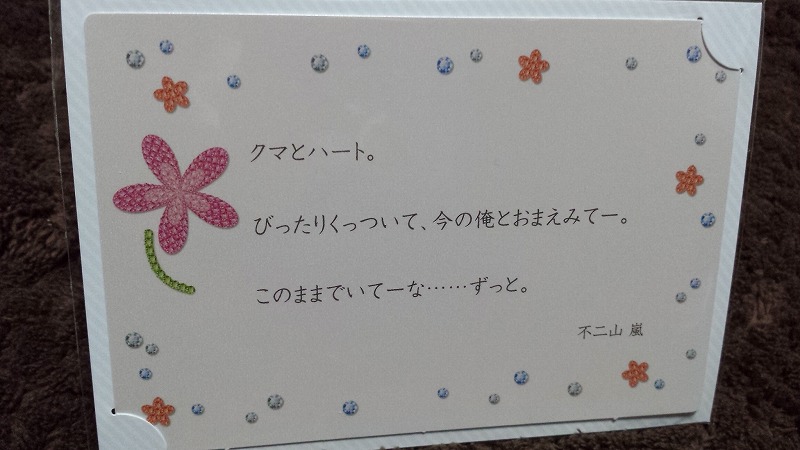 クマとハート。
ぴったりくっついて、今の俺とおまえみてー。
このままでいてーな……ずっと。
不二山 嵐